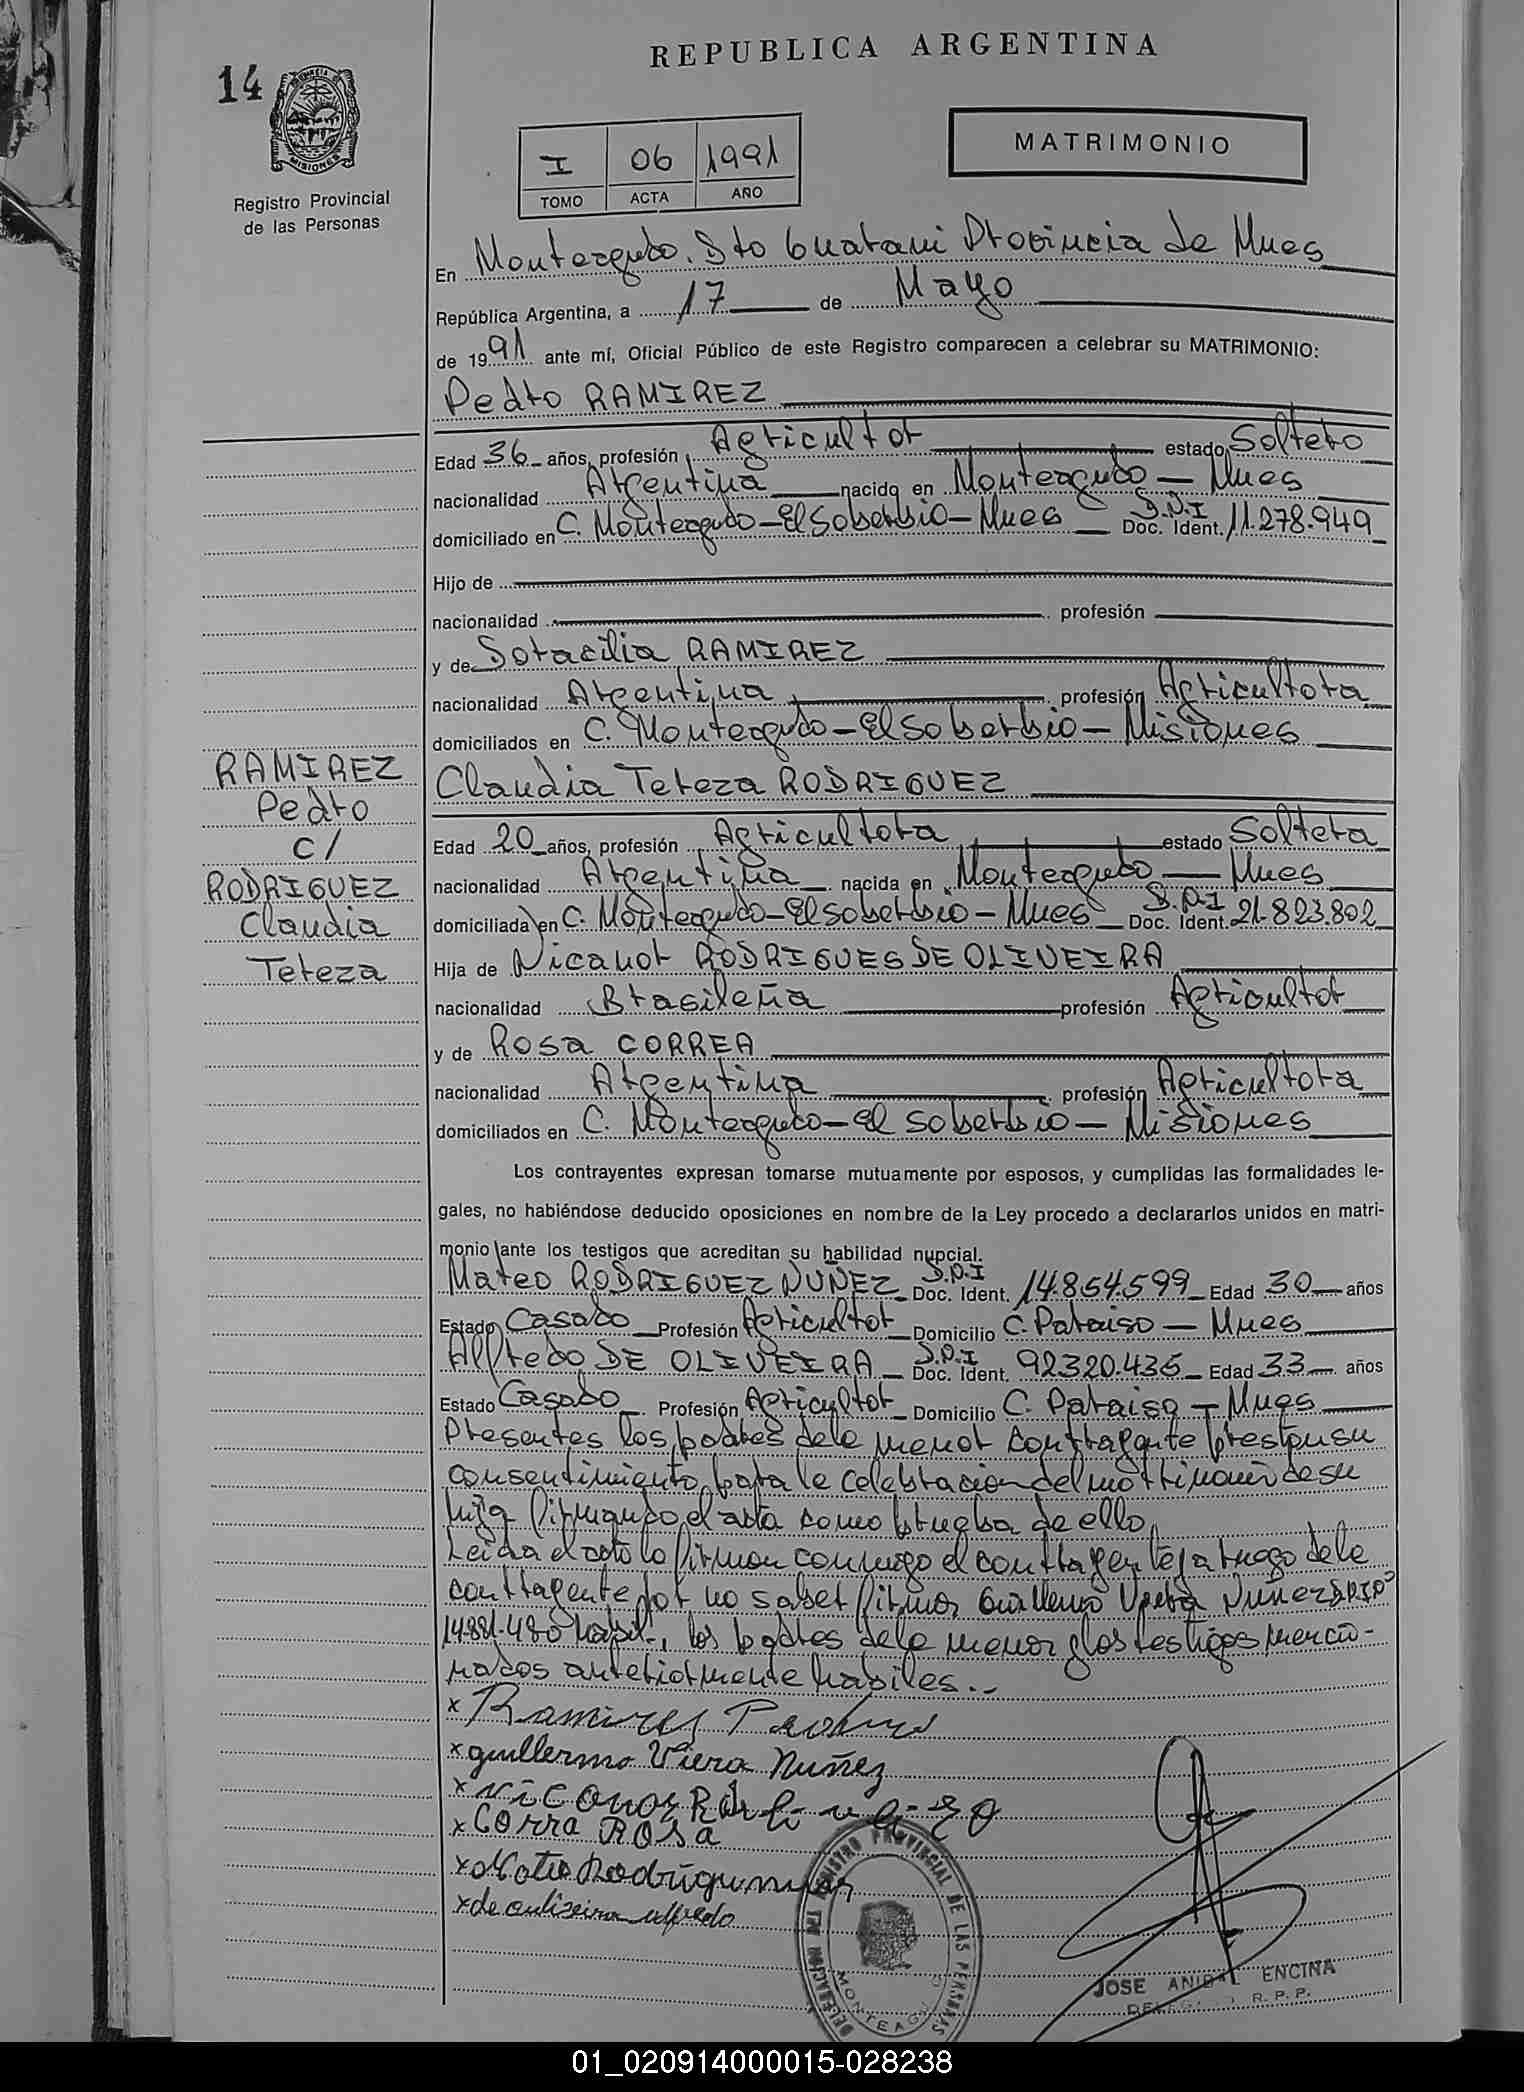 REPUBLICA ARGENTINA
14
PROVINCIA DE
MISIONES
Registro Provincial
de las Personas
I 06 1991
TOMO ACTA AÑO
MATRIMONIO
En Monteagudo. Dto Guarani Provincia de Mnes
República Argentina, a 17 de Mayo
de 1991 ante mí, Oficial Público de este Registro comparecen a celebrar su MATRIMONIO:
Pedro RAMIREZ
Edad 36 años, profesión Agricultor estado Soltero
nacionalidad Argentina nacido en Monteagudo - Mnes
domiciliado en C. Monteagudo - El Soberbio - Mnes D.N.I Doc. Ident. 11.278.949
Hijo de
nacionalidad profesión
y de Soracilia RAMIREZ
nacionalidad Argentina profesión Agricultora
domiciliados en C. Monteagudo - El Soberbio - Misiones
RAMIREZ
Pedro
c/
RODRIGUEZ
Claudia
Tereza
Claudia Tereza RODRIGUEZ
Edad 20 años, profesión Agricultora estado Soltera
nacionalidad Argentina nacida en Monteagudo - Mnes
domiciliada en C. Monteagudo - El Soberbio - Mnes D.N.I Doc. Ident. 21.823.802
Hija de Nicanor RODRIGUES DE OLIVEIRA
nacionalidad Brasileña profesión Agricultor
y de Rosa CORREA
nacionalidad Argentina profesión Agricultora
domiciliados en C. Monteagudo - El Soberbio - Misiones
Los contrayentes expresan tomarse mutuamente por esposos, y cumplidas las formalidades le-
gales, no habiéndose deducido oposiciones en nombre de la Ley procedo a declararlos unidos en matri-
monio ante los testigos que acreditan su habilidad nupcial.
Mateo RODRIGUEZ NUÑEZ D.N.I Doc. Ident. 14.854.599 Edad 30 años
Estado Casado Profesión Agricultor Domicilio C. Paraiso - Mnes
Alfredo DE OLIVEIRA D.N.I Doc. Ident. 92320.435 Edad 33 años
Estado Casado Profesión Agricultor Domicilio C. Paraiso - Mnes
Presentes los padres de la menor contrayente prestan su
consentimiento para la celebracion del matrimonio de su
hija firmando el acta como prueba de ello
Leida el acta la firman conmigo el contrayente, a ruego de la
contrayente por no saber firmar Guillermo Viera Nuñez D.N.I Nº
14.881.480 habil, los padres de la menor y los testigos mencio-
nados anteriormente habiles.-
x Ramires Pedro
x guillermo Viera Nuñez
x Nicanor
x Corra ROSA
x Mateo Rodrigues
x de oliveira alfredo
DELEGACION DEL REGISTRO PROVINCIAL DE LAS PERSONAS
MONTEAGUDO
JOSE ANIBAL ENCINA
DELEGADO R.P.P.
01_020914000015-028238